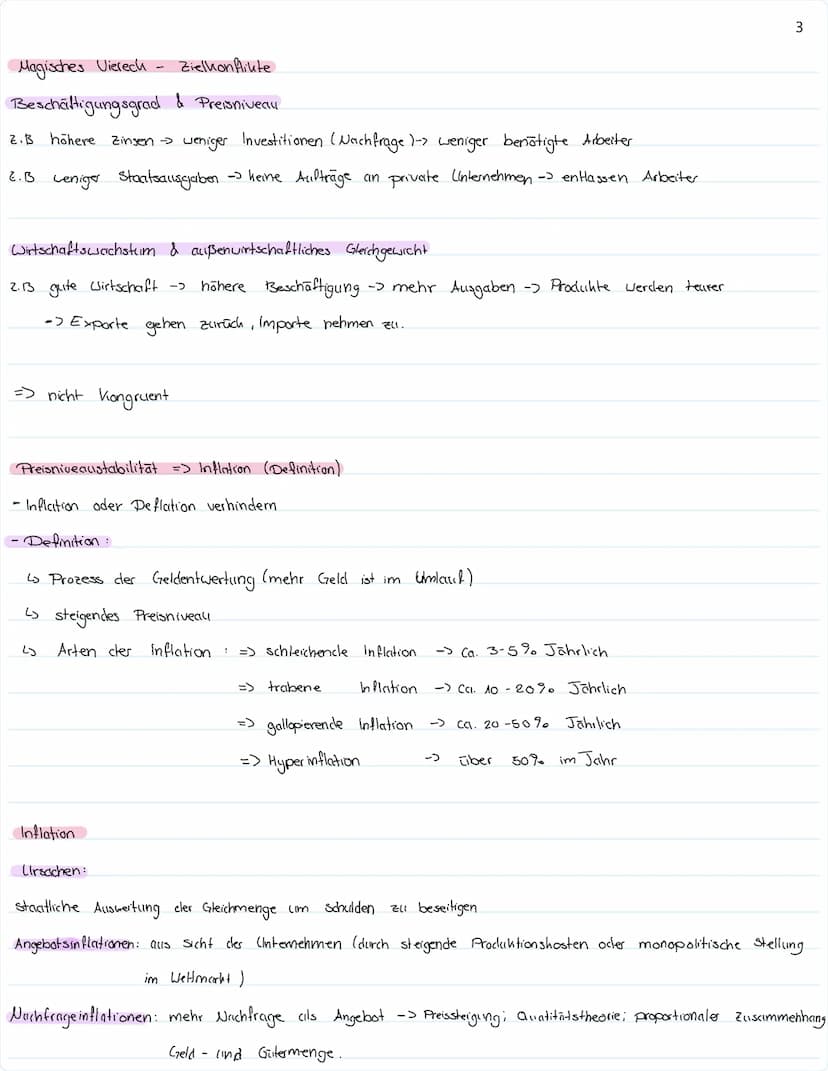 3
Magisches Viereck - Zielkonflikte
Beschäftigungsgrad & Preisniveau
z.B höhere Zinsen -> weniger Investitionen (Nachfrage) -> weniger benötigte Arbeiter
z.B weniger Staatsausgaben -> keine Aufträge an private Unternehmen -> entlassen Arbeiter
Wirtschaftswachstum & außenwirtschaftliches Gleichgewicht
z.B gute Wirtschaft -> höhere Beschäftigung -> mehr Ausgaben -> Produkte werden teurer
-> Exporte gehen zurück, Importe nehmen zu.
=> nicht Kongruent
Preisniveaustabilität => Inflation (Definition)
- Inflation oder Deflation verhindern
- Definition:
↳ Prozess der Geldentwertung (mehr Geld ist im Umlauf)
↳ steigendes Preisniveau
↳ Arten der Inflation : => schleichende Inflation -> ca. 3-5% Jährlich
=> trabene Inflation -> ca. 10 - 20% Jährlich
=> gallopierende Inflation -> ca. 20 - 50% Jährlich
=> Hyperinflation -> über 50% im Jahr
Inflation
Ursachen:
Staatliche Ausweitung der Gleichmenge um Schulden zu beseitigen
Angebotsinflationen: aus Sicht der Unternehmen (durch steigende Produktionskosten oder monopolitische Stellung
im Weltmarkt)
Nachfrageinflationen: mehr Nachfrage als Angebot -> Preissteigung; Quatitätstheorie; proportionaler Zusammenhang
Geld - und Gütermenge.